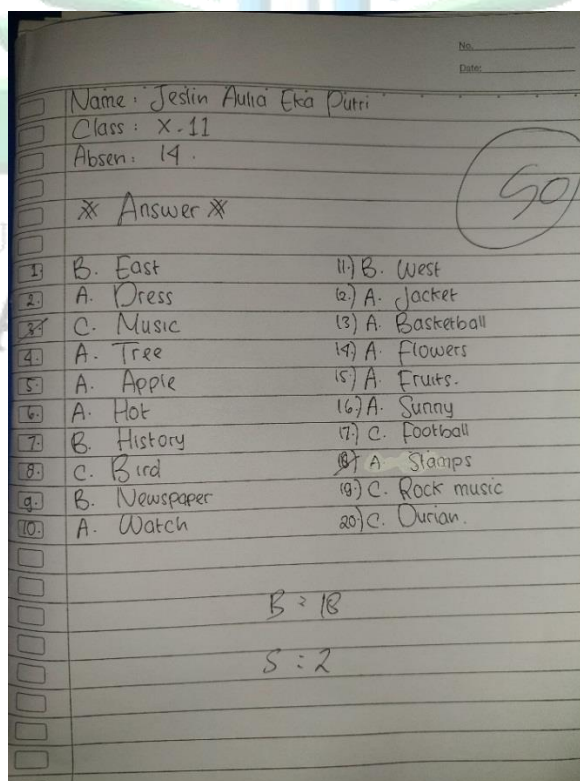 No.
Date:
Name : Jeslin Aulia Eka Putri
Class : X-11
Absen : 14 .
Answer
1. B. East
2. A. Dress
3. C. Music
4. A. Tree
5. A. Apple
6. A. Hot
7. B. History
8. C. Bird
9. B. Newspaper
10. A. Watch
11.) B. West
12.) A. Jacket
13) A. Basketball
14) A. Flowers
15.) A. Fruits.
16.) A. Sunny
17.) C. Football
18) A. Stamps
19.) C. Rock music
20.) C. Durian.
B : 18
S : 2